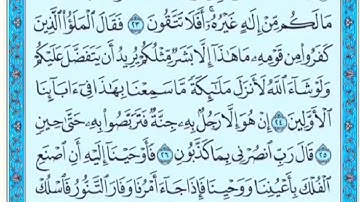 مَا لَكُم مِّنْ إِلَٰهٍ غَيْرُهُۥٓ ۖ أَفَلَا تَتَّقُونَ ﴿٢٣﴾ فَقَالَ ٱلْمَلَؤُا۟ ٱلَّذِينَ
كَفَرُوا۟ مِن قَوْمِهِۦ مَا هَٰذَآ إِلَّا بَشَرٌ مِّثْلُكُمْ يُرِيدُ أَن يَتَفَضَّلَ عَلَيْكُمْ
وَلَوْ شَآءَ ٱللَّهُ لَأَنزَلَ مَلَٰٓئِكَةً مَّا سَمِعْنَا بِهَٰذَا فِىٓ ءَابَآئِنَا
ٱلْأَوَّلِينَ ﴿٢٤﴾ إِنْ هُوَ إِلَّا رَجُلٌۢ بِهِۦ جِنَّةٌ فَتَرَبَّصُوا۟ بِهِۦ حَتَّىٰ حِينٍ
﴿٢٥﴾ قَالَ رَبِّ ٱنصُرْنِى بِمَا كَذَّبُونِ ﴿٢٦﴾ فَأَوْحَيْنَآ إِلَيْهِ أَنِ ٱصْنَعِ
ٱلْفُلْكَ بِأَعْيُنِنَا وَوَحْيِنَا فَإِذَا جَآءَ أَمْرُنَا وَفَارَ ٱلتَّنُّورُ ۙ فَٱسْلُكْ